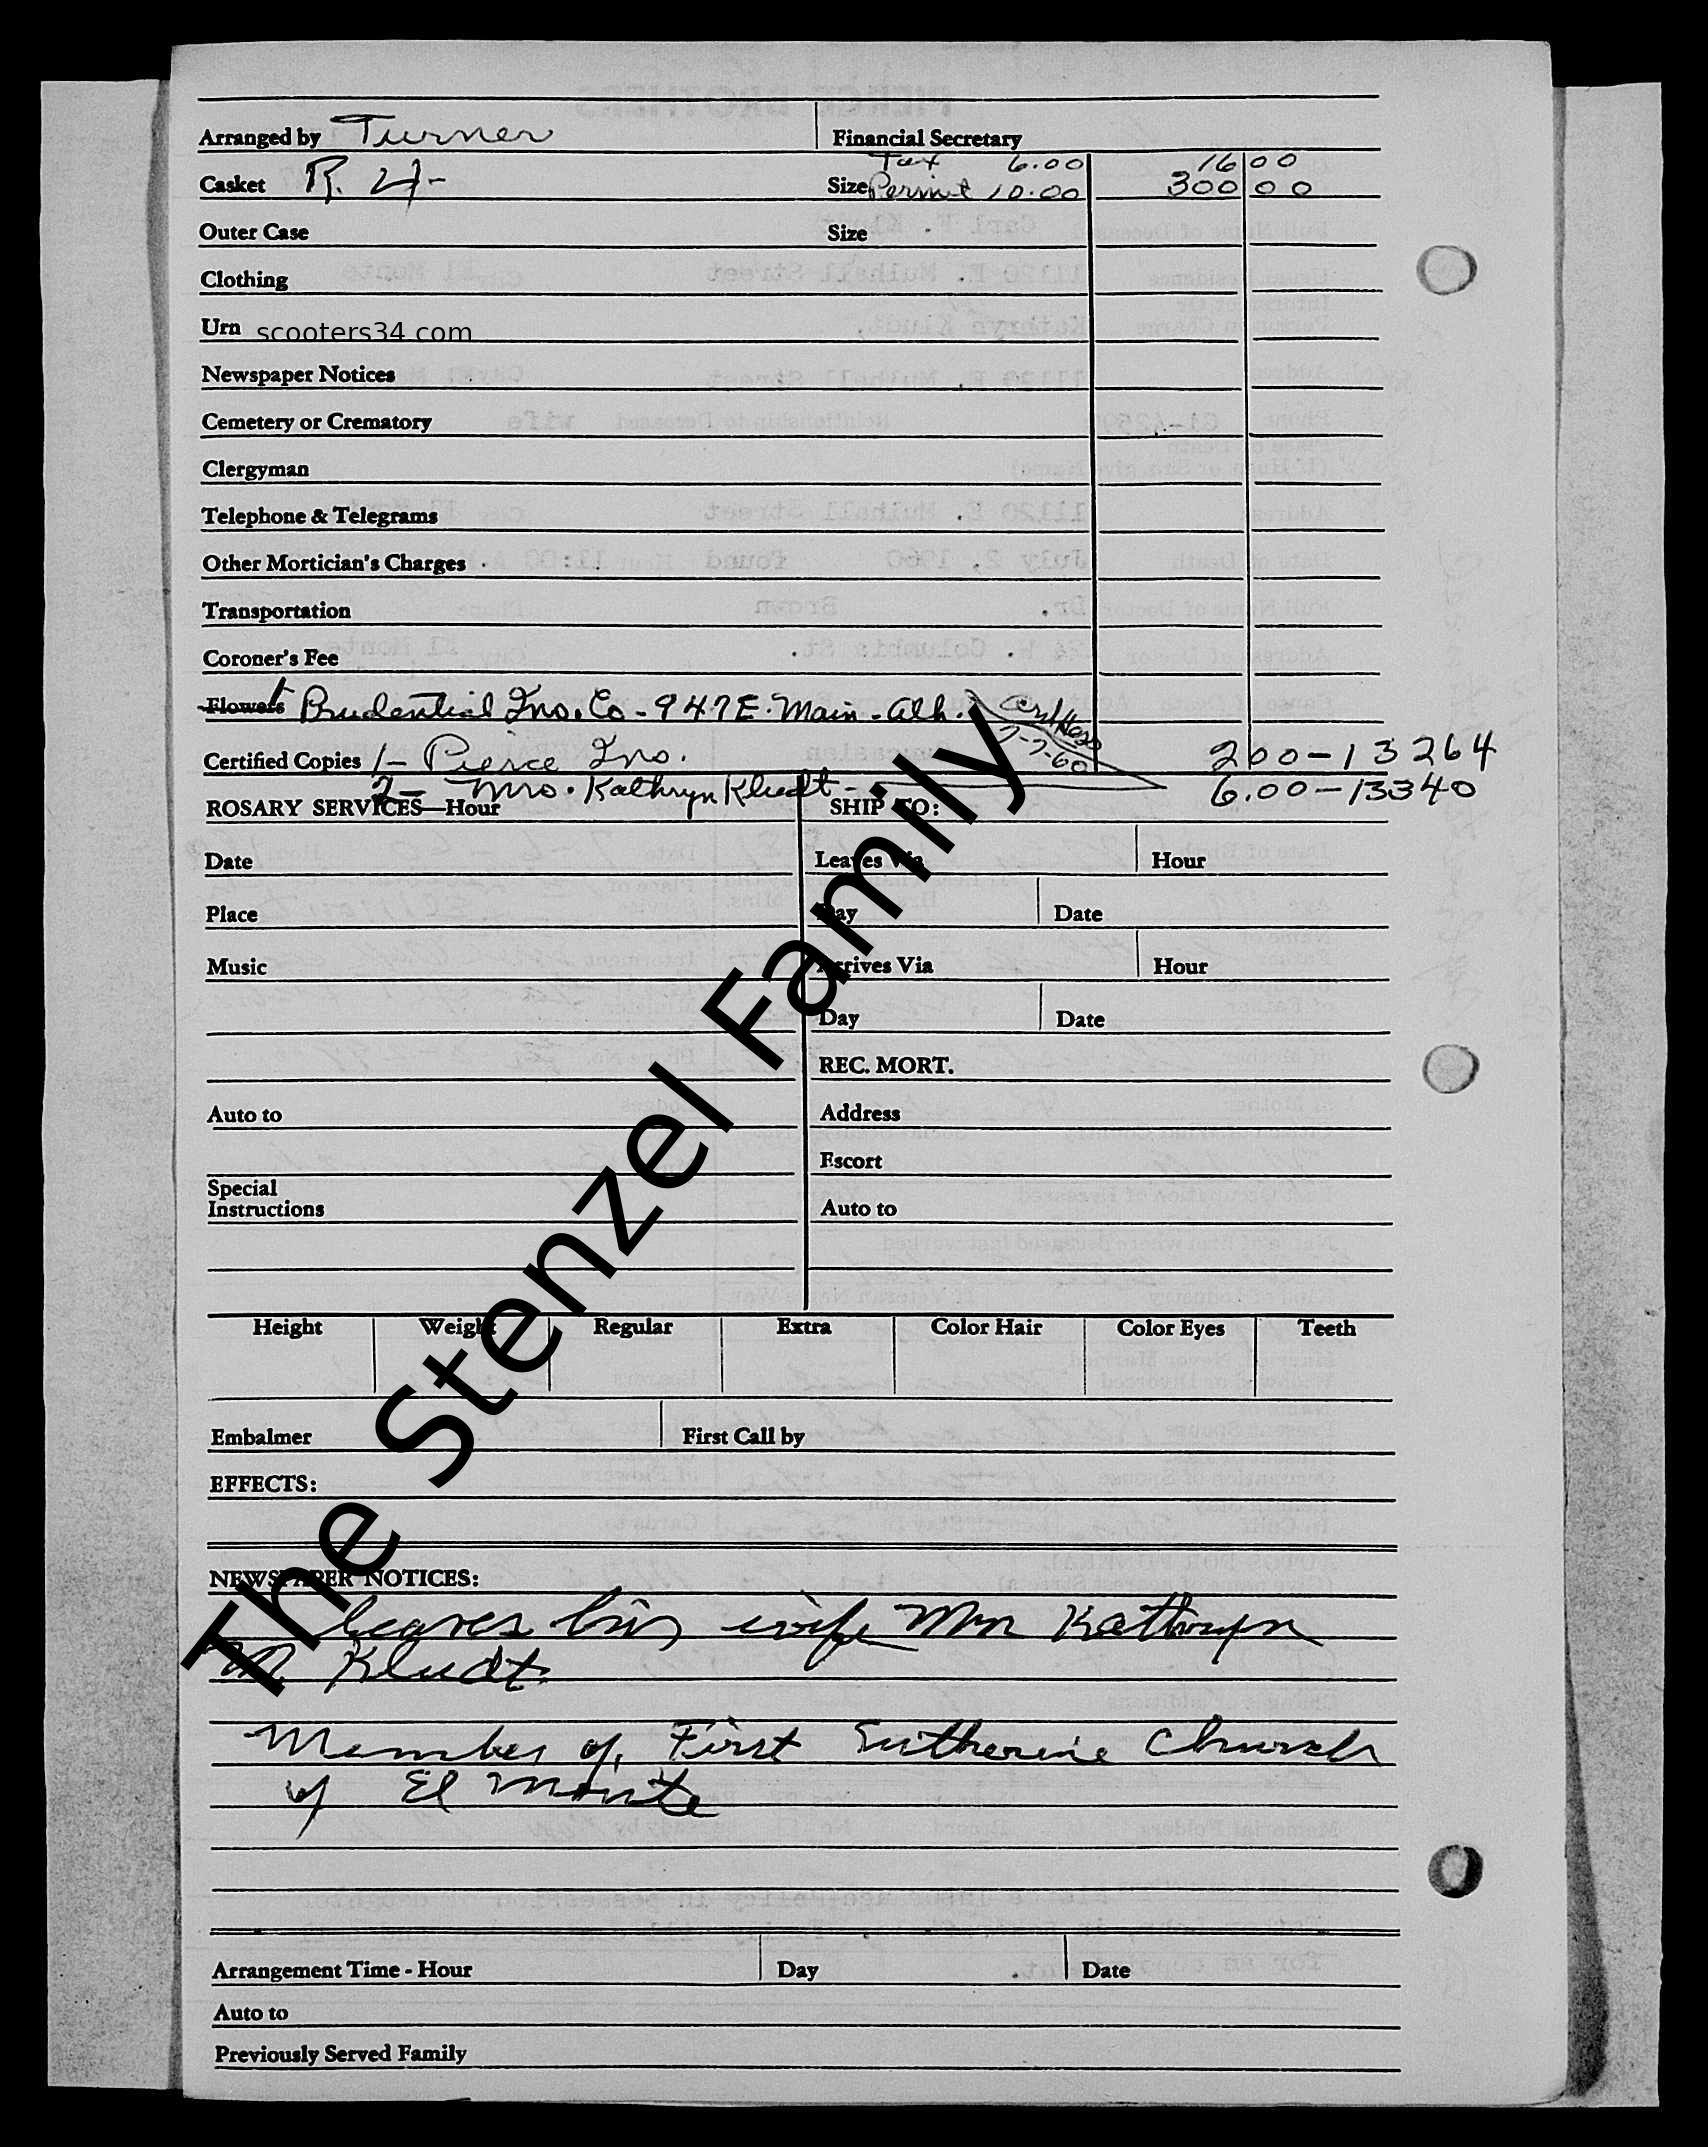 Arranged by Turner Financial Secretary
Tax 6.00 16 00
Casket R. 4- Size Permit 10.00 300 00
Outer Case Size
Clothing
Urn scooters34.com
Newspaper Notices
Cemetery or Crematory
Clergyman
Telephone & Telegrams
Other Mortician's Charges
Transportation
Coroner's Fee
Flowers Prudential Ins. Co - 947 E. Main - Alh.
7-7-60
Certified Copies 1- Pierce Ins. 200-13264
2- Mrs. Kathryn Kludt - 6.00-13340
ROSARY SERVICES—Hour SHIP TO:
Date Leaves Via Hour
Place Day Date
Music Arrives Via Hour
Day Date
REC. MORT.
Auto to Address
Escort
Special
Instructions Auto to
Height Weight Regular Extra Color Hair Color Eyes Teeth
Embalmer First Call by
EFFECTS:
NEWSPAPER NOTICES:
leaves his wife Mrs Kathryn
M. Kludt.
Member of First Lutherine Church
of El Monte
Arrangement Time - Hour Day Date
Auto to
Previously Served Family
The Stenzel Family